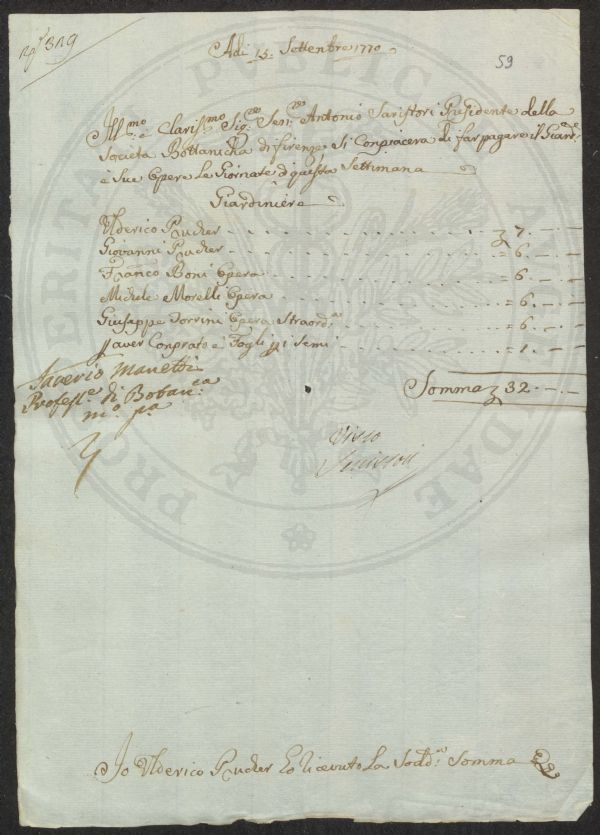 319
Adi 15. Settembre 1770
59
Ill.mo e Clariss.mo Sig.re Sen.re Antonio Saristori Presidente della
Società Bottanicha di firenze Si Conpiacera di far pagare il Giard.e
e Sue Opere Le Giornate di questa Settimana
Giardiniere
Ulderico Prucker 7.
Giovanni Prucker = 6.
Franco Boni Opera = 6.
Michele Morelli Opera = 6.
Giuseppe Torrini Opera Straord.ia = 6
p aver Conprato e Fogli p i Semi = 1.
Somma 32
Saverio Manetti
Profess.e di Botan.ca
m.o p.a
Visto
Io Ulderico Prucker Ho ricevuto La Sodd.a Somma
PRO VERITATE PUBLICE AUGENDAE